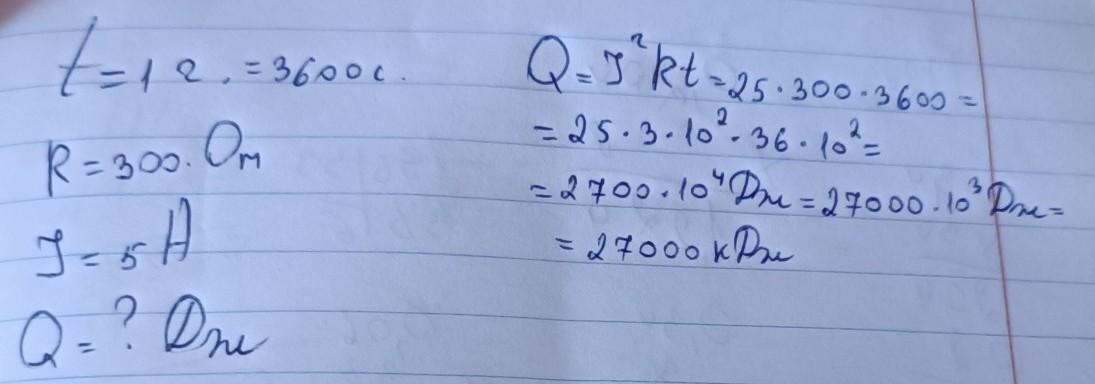 t = 1 г. = 3600 с.
R = 300. Ом
I = 5 А
Q = ? Дж
Q = I²Rt = 25 · 300 · 3600 =
= 25 · 3 · 10² · 36 · 10² =
= 2700 · 10⁴ Дж = 27000 · 10³ Дж =
= 27000 кДж